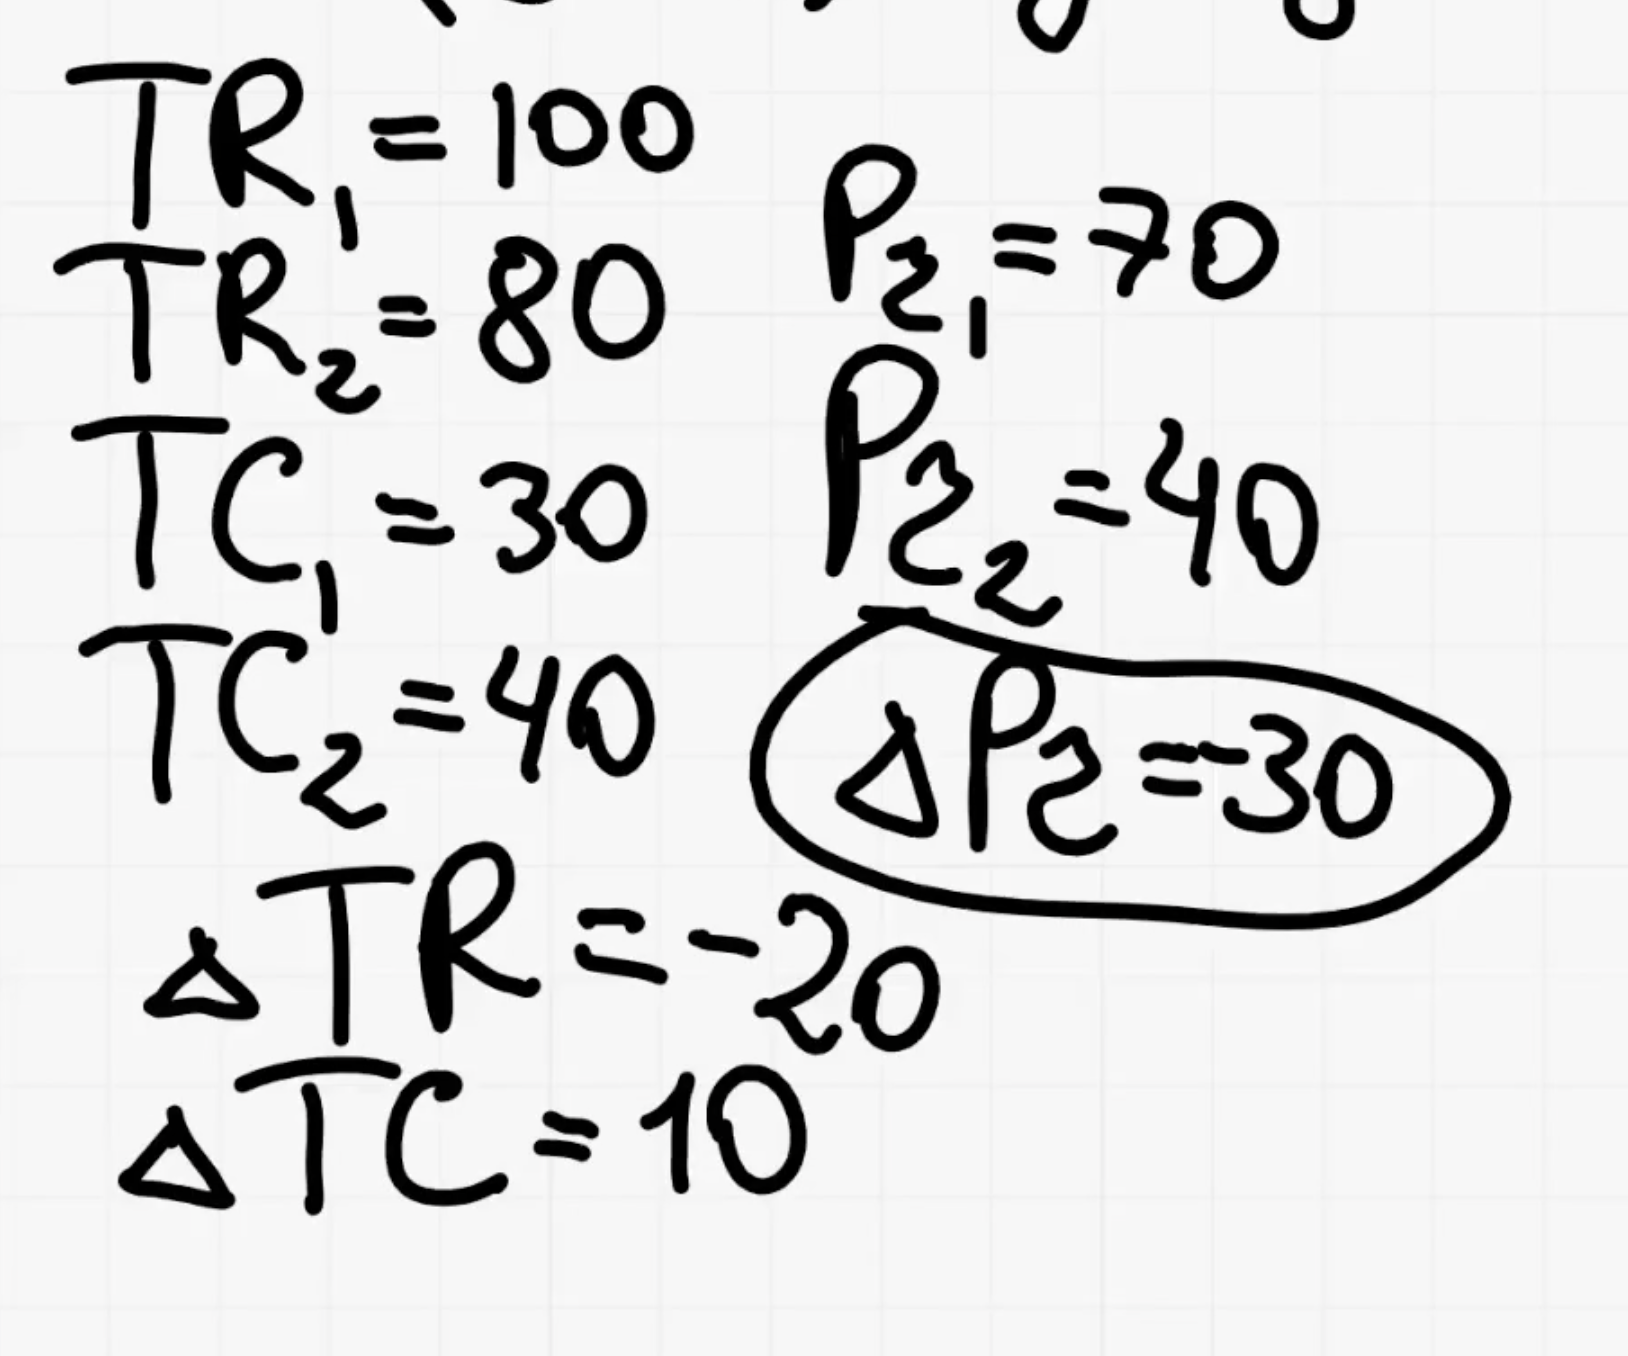 TR₁ = 100
TR₂ = 80
TC₁ = 30
TC₂ = 40
ΔTR = -20
ΔTC = 10
Pr₁ = 70
Pr₂ = 40
ΔPr = -30